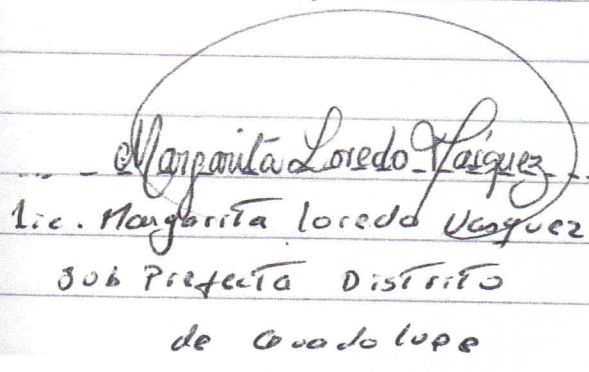 Margarita Loredo Vásquez
Lic. Margarita loredo Vasquez
Sub Prefecta Distrito
de Guadalupe